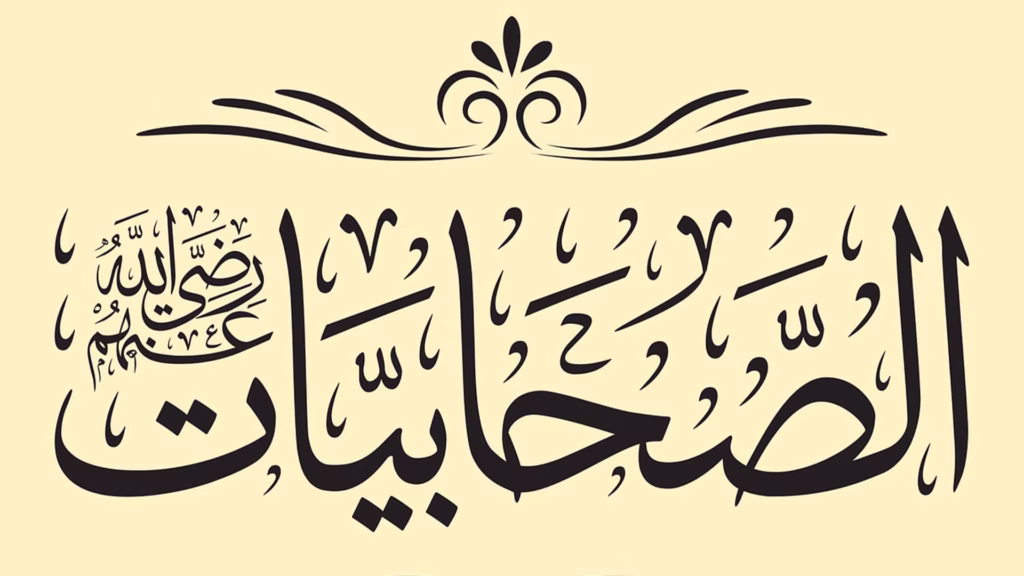 الصَّحَابِيَّات
رَضِيَ اللَّهُ عَنْهُمْ